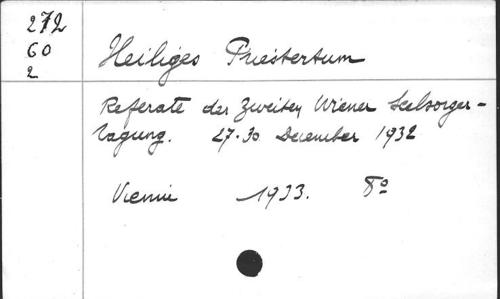 272
60
2
Heiliges Priestertum
Referate der Zweiten Wiener Seelsorger-
tagung. 27-30 December 1932
Vienne 1933. 8º